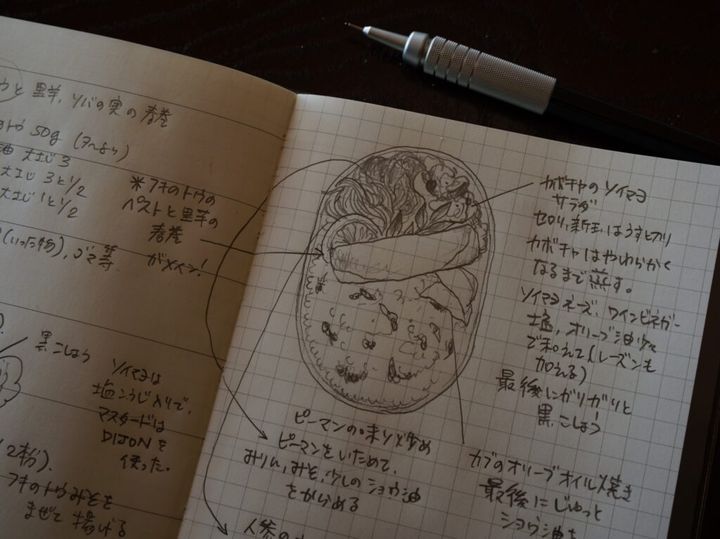 と里芋、ソバの実の春巻
トウ 50g
大さじ 3
大さじ 3と1/2
大さじ 1と1/2
ゴマ等
※フキのトウの
ペストと里芋の
春巻
がメイン!
黒こしょう
ソイマヨは
塩こうじ入りで、
マスタードは
DIJONを
使った。
(2本分).
フキのトウみそを
まぜて 揚げる
カボチャのソイマヨ
サラダ
セロリ、新玉はうす切り
カボチャはやわらかく
なるまで蒸す。
ソイマヨネーズ、ワインビネガー
塩、オリーブ油少々
で和えて(レーズンも
加える)
最後にガリガリと
黒こしょう
ピーマンのみそ炒め
ピーマンをいためて、
みりん、みそ、少しのショウ油
をからめる
カブのオリーブオイル焼き
最後にじゅっと
ショウ油を
人参の